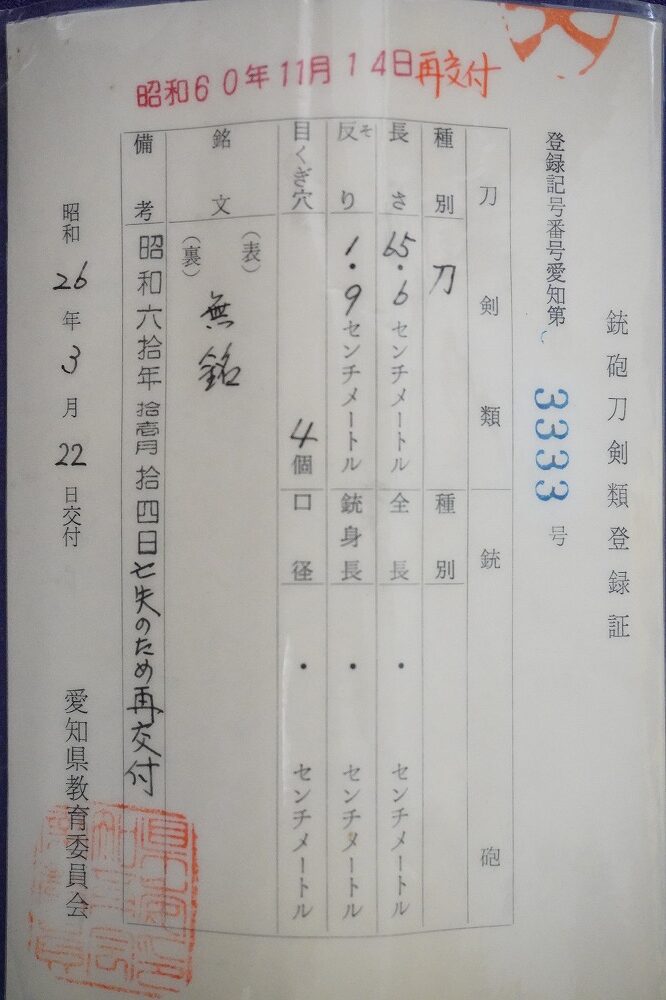 昭和60年11月14日再交付
銃砲刀剣類登録証
登録記号番号愛知第 3333 号
刀剣類
種別 刀
長さ 65.6センチメートル
反り そ 1.9センチメートル
目くぎ穴 4個
銘文 (表) 無銘
(裏)
銃砲
種別
全長 ・ センチメートル
銃身長 ・ センチメートル
口径 ・ センチメートル
備考 昭和六拾年拾壱月拾四日亡失のため再交付
昭和26年3月22日交付
愛知県教育委員会